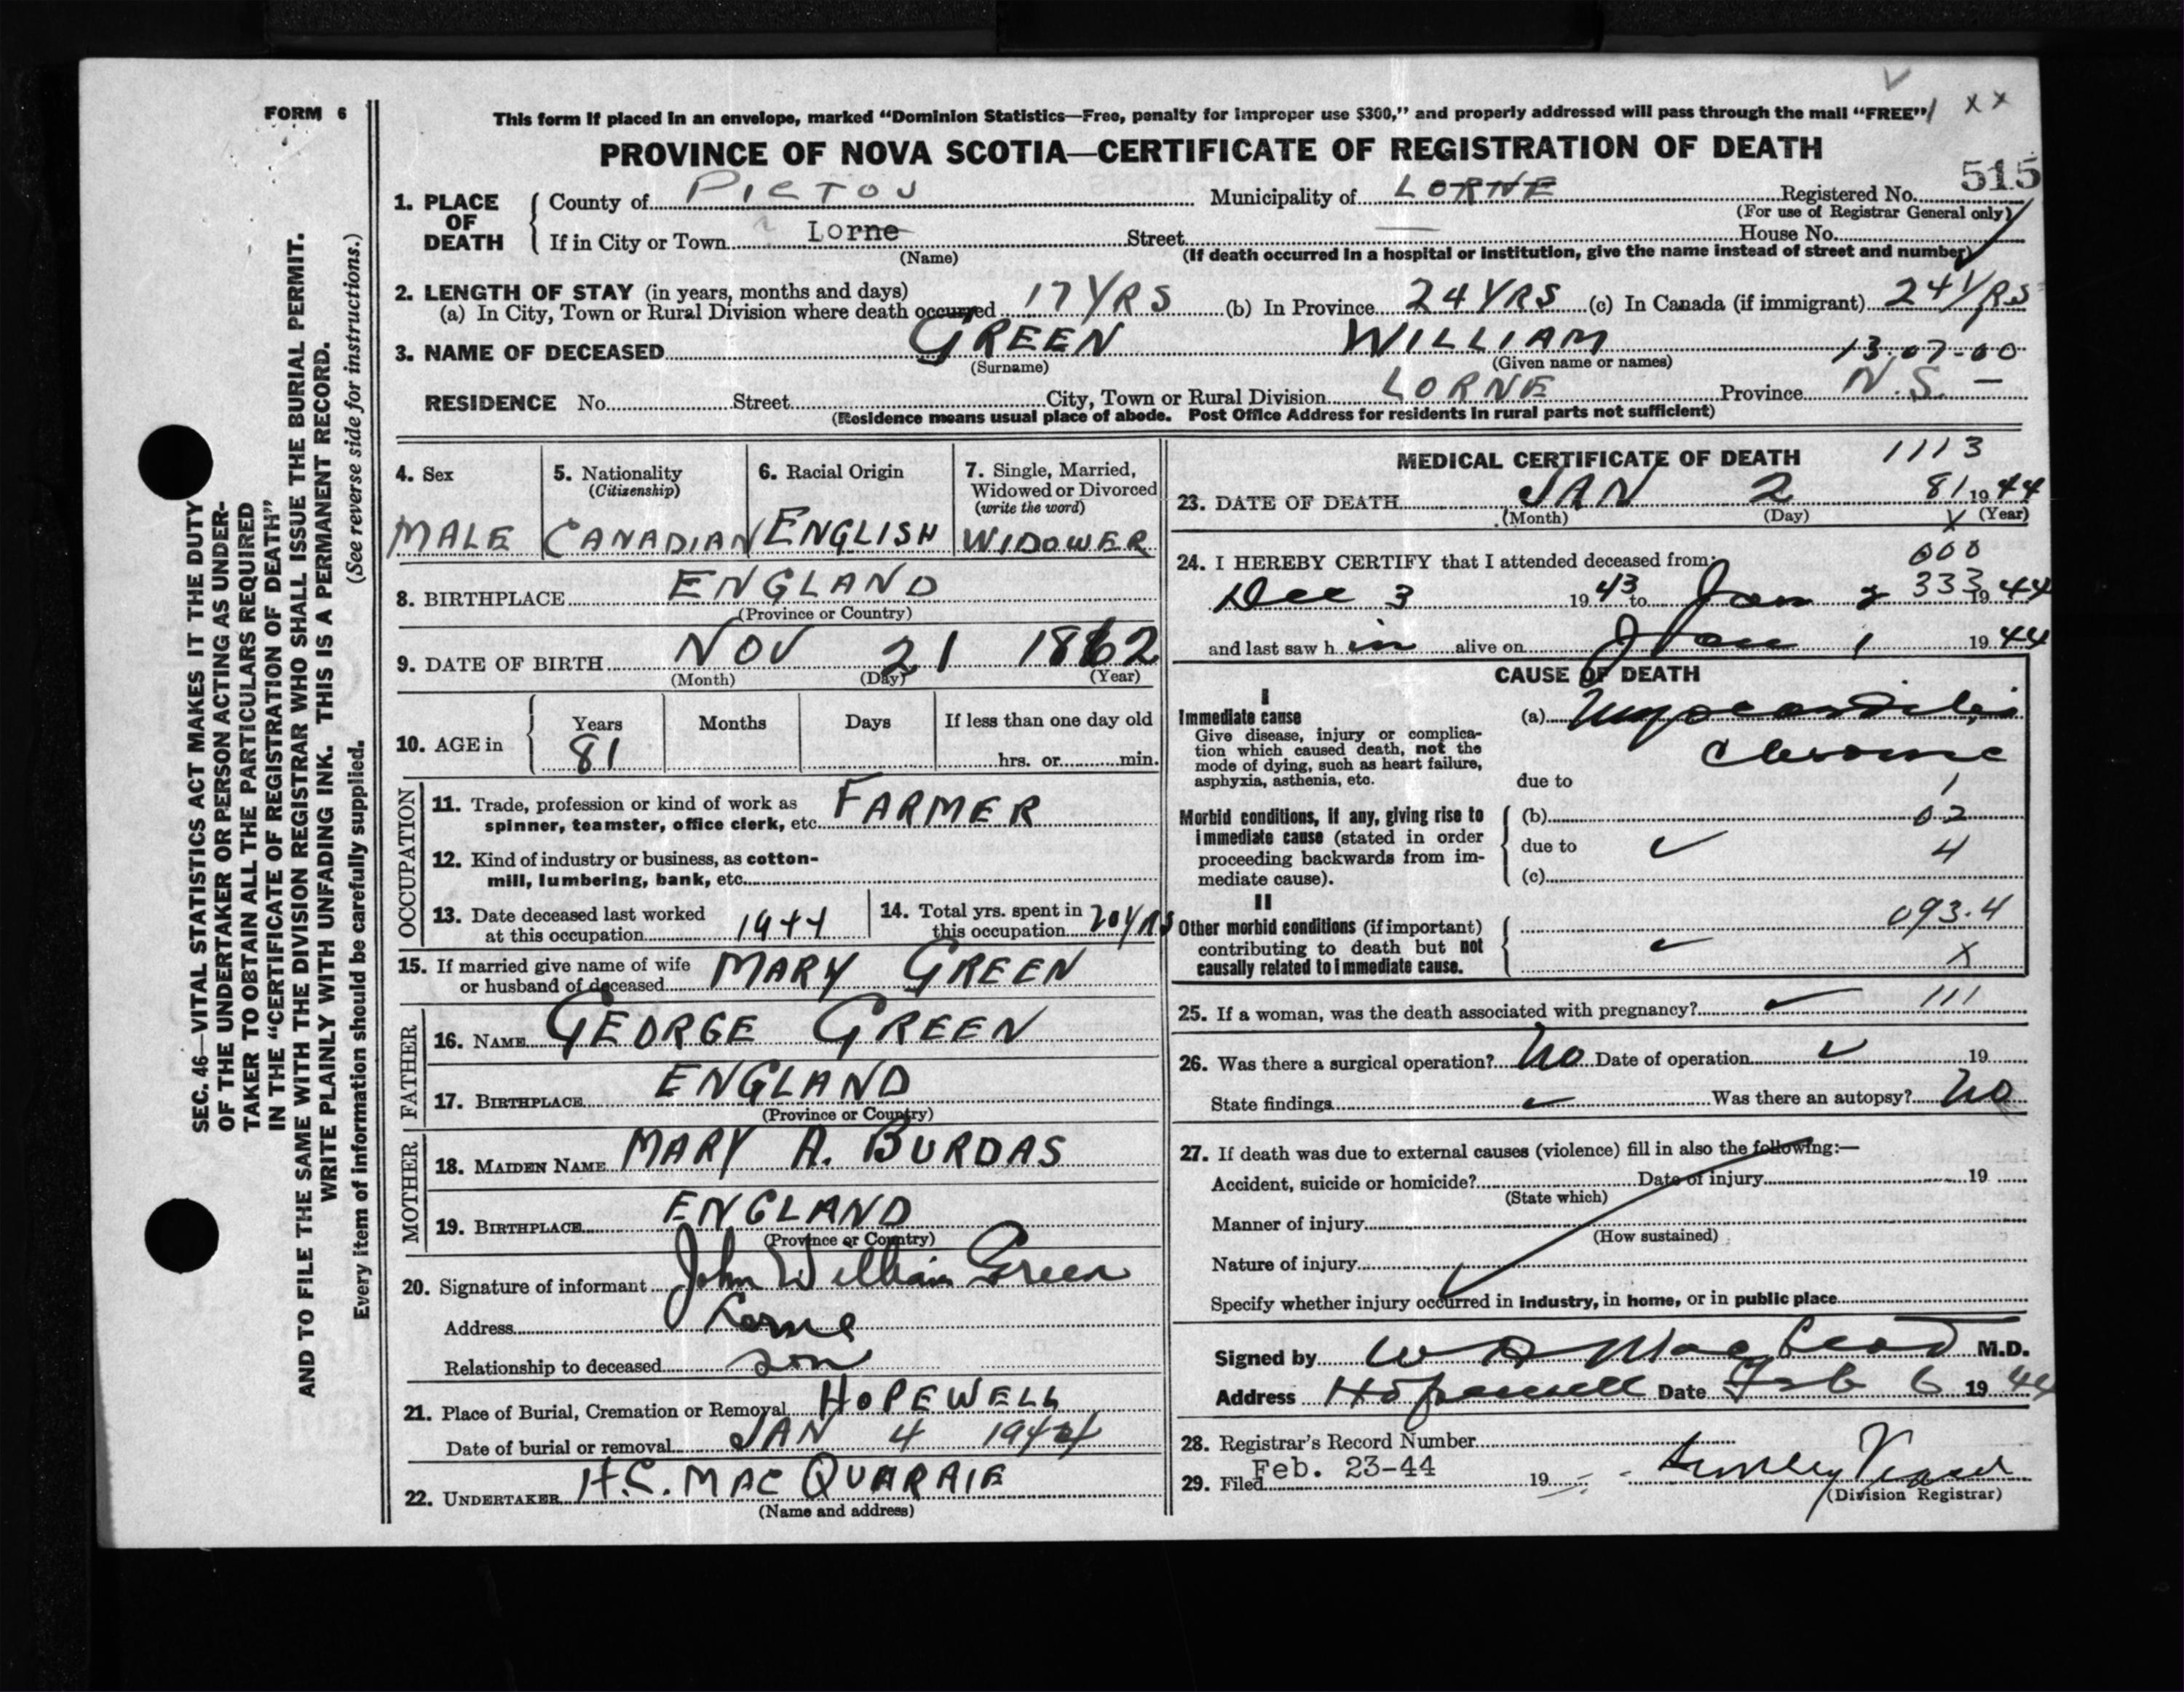 FORM 6
This form if placed in an envelope, marked “Dominion Statistics—Free, penalty for improper use $300,” and properly addressed will pass through the mail “FREE” x x
PROVINCE OF NOVA SCOTIA—CERTIFICATE OF REGISTRATION OF DEATH
515
1. PLACE OF DEATH
County of PICTOU Municipality of LORNE Registered No.
(For use of Registrar General only)
If in City or Town Lorne Street — House No.
(Name) (If death occurred in a hospital or institution, give the name instead of street and number)
2. LENGTH OF STAY (in years, months and days)
(a) In City, Town or Rural Division where death occurred 17 YRS (b) In Province 24 YRS (c) In Canada (if immigrant) 24 YRS
3. NAME OF DECEASED GREEN WILLIAM 13.07-00
(Surname) (Given name or names)
RESIDENCE No. Street City, Town or Rural Division LORNE Province N.S. —
(Residence means usual place of abode. Post Office Address for residents in rural parts not sufficient)
4. Sex
MALE
5. Nationality
(Citizenship)
CANADIAN
6. Racial Origin
ENGLISH
7. Single, Married,
Widowed or Divorced
(write the word)
WIDOWER
8. BIRTHPLACE ENGLAND
(Province or Country)
9. DATE OF BIRTH NOV 21 1862
(Month) (Day) (Year)
10. AGE in
Years Months Days If less than one day old
81 hrs. or min.
OCCUPATION
11. Trade, profession or kind of work as
spinner, teamster, office clerk, etc. FARMER
12. Kind of industry or business, as cotton-
mill, lumbering, bank, etc.
13. Date deceased last worked
at this occupation 1944
14. Total yrs. spent in
this occupation 20 YRS
15. If married give name of wife
or husband of deceased MARY GREEN
FATHER
16. NAME GEORGE GREEN
17. BIRTHPLACE ENGLAND
(Province or Country)
MOTHER
18. MAIDEN NAME MARY A. BURDAS
19. BIRTHPLACE ENGLAND
(Province or Country)
20. Signature of informant John William Green
Address Lorne
Relationship to deceased son
21. Place of Burial, Cremation or Removal HOPEWELL
Date of burial or removal JAN 4 1944
22. UNDERTAKER H.C. MACQUARAIE
(Name and address)
MEDICAL CERTIFICATE OF DEATH 1113
23. DATE OF DEATH JAN 2 81 1944
(Month) (Day) (Year)
X
24. I HEREBY CERTIFY that I attended deceased from: 000
Dec 3 1943 to Jan 2 333 1944
and last saw h im alive on Jan 1 1944
CAUSE OF DEATH
I
Immediate cause
Give disease, injury or complica-
tion which caused death, not the
mode of dying, such as heart failure,
asphyxia, asthenia, etc.
(a) Myocarditis
Chronic
due to 1
Morbid conditions, if any, giving rise to
immediate cause (stated in order
proceeding backwards from im-
mediate cause).
(b) 02
due to 4
(c)
II
Other morbid conditions (if important)
contributing to death but not
causally related to immediate cause.
093.4
X
25. If a woman, was the death associated with pregnancy? 111
26. Was there a surgical operation? No Date of operation 19
State findings Was there an autopsy? No
27. If death was due to external causes (violence) fill in also the following:—
Accident, suicide or homicide? Date of injury 19
(State which)
Manner of injury
(How sustained)
Nature of injury
Specify whether injury occurred in industry, in home, or in public place
Signed by W A MacLeod M.D.
Address Hopewell Date Feb 6 1944
28. Registrar's Record Number
29. Filed Feb. 23-44 19
(Division Registrar)
SEC. 46—VITAL STATISTICS ACT MAKES IT THE DUTY
OF THE UNDERTAKER OR PERSON ACTING AS UNDER-
TAKER TO OBTAIN ALL THE PARTICULARS REQUIRED
IN THE “CERTIFICATE OF REGISTRATION OF DEATH”
AND TO FILE THE SAME WITH THE DIVISION REGISTRAR WHO SHALL ISSUE THE BURIAL PERMIT.
WRITE PLAINLY WITH UNFADING INK. THIS IS A PERMANENT RECORD.
Every item of information should be carefully supplied. (See reverse side for instructions.)